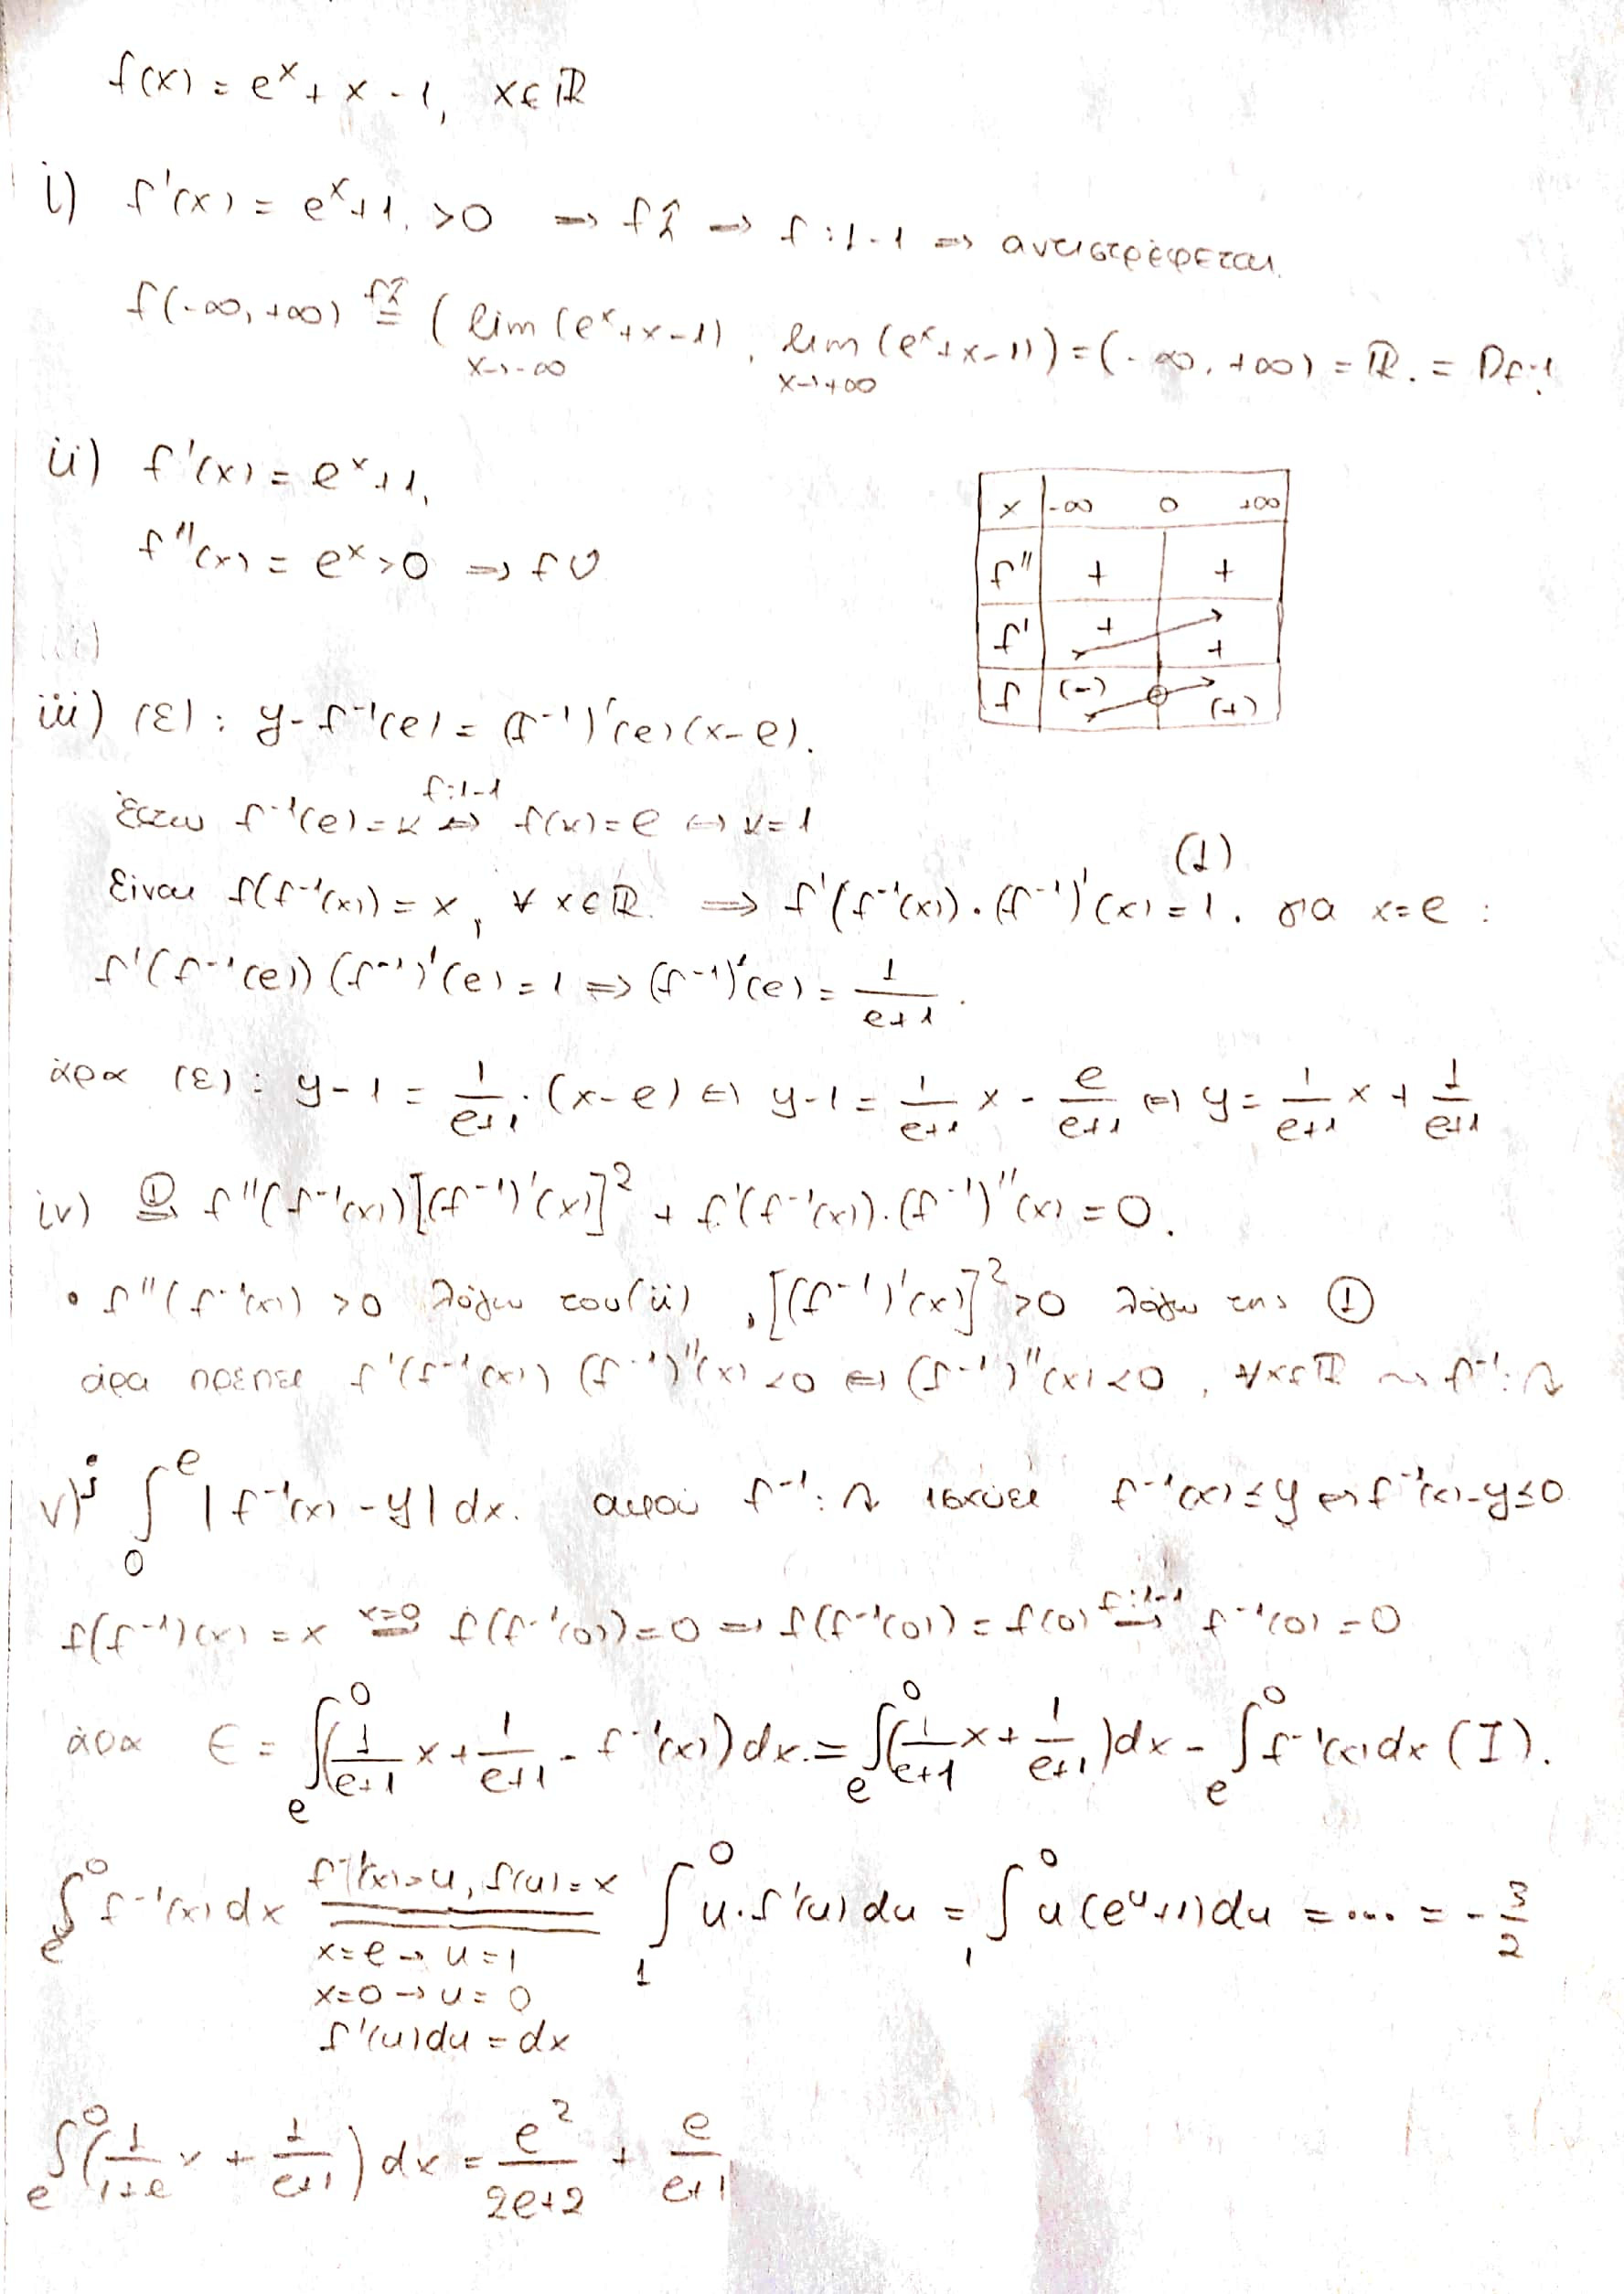 f(x) = e^x + x - 1, x∈ℝ
i) f'(x) = e^x+1 >0 ⇒ f↑ ⇒ f:1-1 ⇒ αντιστρέφεται.
f(-∞,+∞) =^{f↑} ( lim_{x→-∞} (e^x+x-1), lim_{x→+∞} (e^x+x-1)) = (-∞,+∞) = ℝ. = D_{f^{-1}}
ii) f'(x) = e^x+1,
f''(x) = e^x>0 ⇒ f∪
x -∞ 0 +∞
f'' + +
f' + +
f (-) 0 (+)
iii) (ε): y-f^{-1}(e) = (f^{-1})'(e)(x-e).
Έστω f^{-1}(e)=κ ⇔^{f:1-1} f(κ)=e ⇔ κ=1
Είναι f(f^{-1}(x)) = x, ∀ x∈ℝ. ⇒ f'(f^{-1}(x))·(f^{-1})'(x) =^{(1)} 1. για x=e :
f'(f^{-1}(e)) (f^{-1})'(e) = 1 ⇒ (f^{-1})'(e) = 1/(e+1).
άρα (ε): y-1 = 1/(e+1)·(x-e) ⇔ y-1 = 1/(e+1) x - e/(e+1) ⇔ y = 1/(e+1) x + 1/(e+1)
iv) ①⇒ f''(f^{-1}(x))[(f^{-1})'(x)]^2 + f'(f^{-1}(x))·(f^{-1})''(x) = 0.
• f''(f^{-1}(x)) >0 λόγω του (ii), [(f^{-1})'(x)]^2>0 λόγω της ①
άρα πρέπει f'(f^{-1}(x)) (f^{-1})''(x)<0 ⇔ (f^{-1})''(x)<0, ∀x∈ℝ ⤳ f^{-1}:∩
v) ∫_0^e |f^{-1}(x)-y| dx. αφού f^{-1}:∩ ισχύει f^{-1}(x)≤y ⇔ f^{-1}(x)-y≤0
f(f^{-1})(x) = x ⇒^{x=0} f(f^{-1}(0))=0 ⇒ f(f^{-1}(0)) = f(0) ⇒^{f:1-1} f^{-1}(0) = 0
άρα E = ∫_e^0 (1/(e+1) x + 1/(e+1) - f^{-1}(x)) dx = ∫_e^0 (1/(e+1) x + 1/(e+1)) dx - ∫_e^0 f^{-1}(x) dx (I).
∫_e^0 f^{-1}(x) dx = f^{-1}(x)=u, f(u)=x ∫_1^0 u·f'(u) du = ∫_1^0 u(e^u+1) du = ... = -3/2
x=e → u=1
x=0 → u=0
f'(u)du = dx
∫_e^0 (1/(1+e) x + 1/(e+1)) dx = e^2/(2e+2) + e/(e+1)